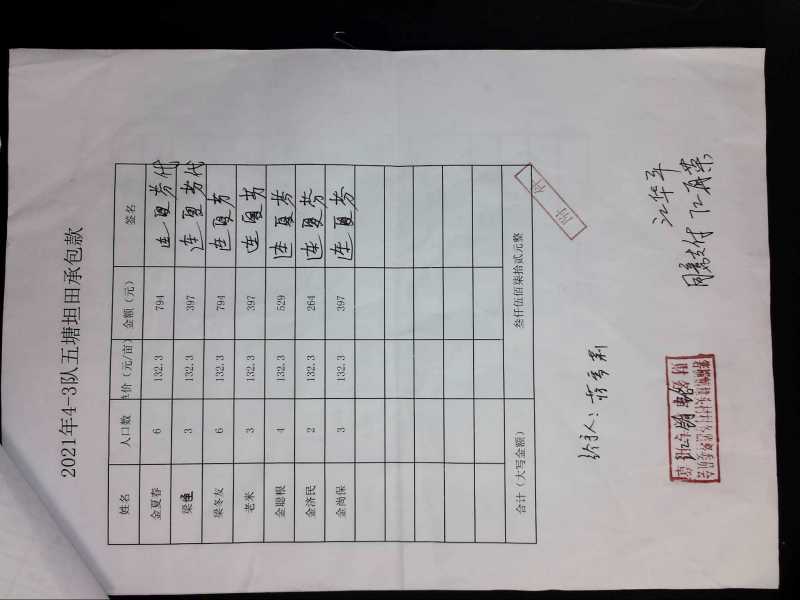 2021年4-3队五塘坦田承包款
姓名 人口数 单价(元/亩) 金额(元) 签名
金夏春 6 132.3 794 连夏芳代
梁 3 132.3 397 连夏芳代
梁冬友 6 132.3 794 连夏芳
老米 3 132.3 397 连夏芳
金聪根 4 132.3 529 连夏芳
金济民 2 132.3 264 连夏芳
金尚保 3 132.3 397 连夏芳
合计(大写金额) 叁仟伍佰柒拾贰元整
附件
经手人:
江华平
同意支付